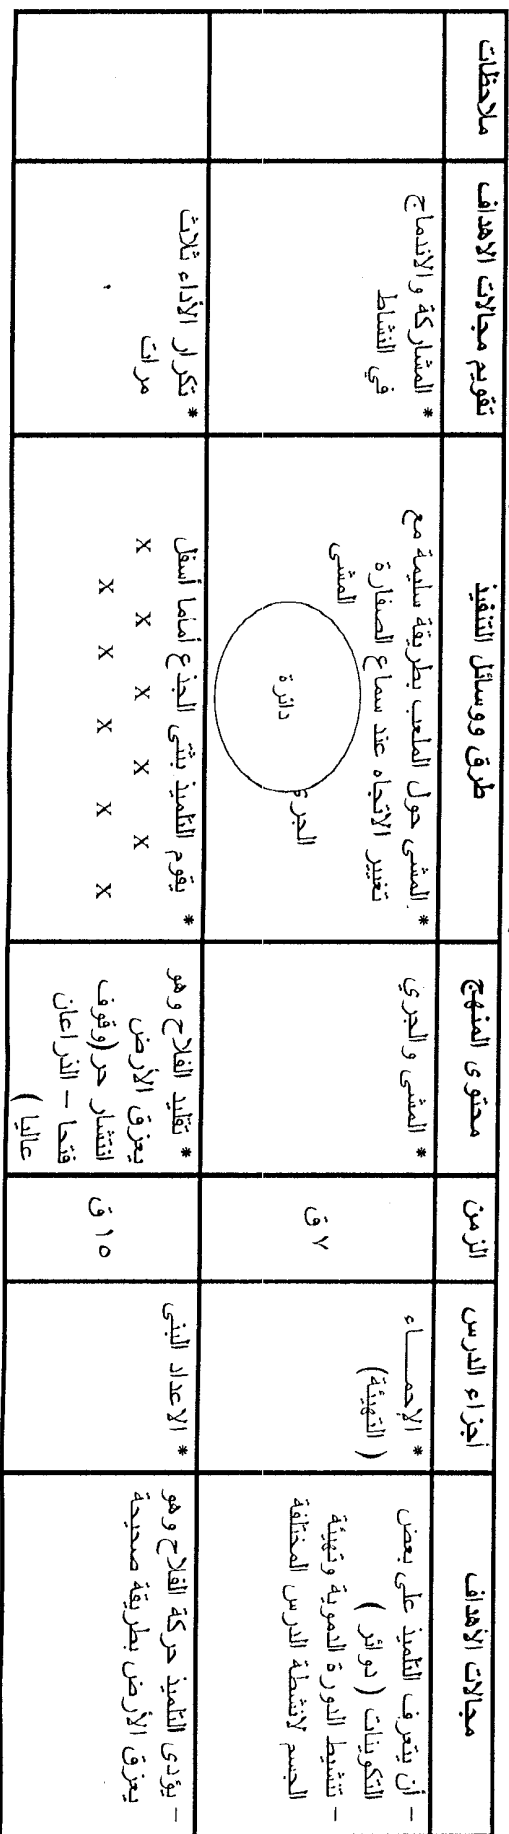 مجالات الأهداف
أجزاء الدرس
الزمن
محتوى المنهج
طرق ووسائل التنفيذ
تقويم مجالات الاهداف
ملاحظات
- أن يتعرف التلميذ على بعض
التكوينات ( دوائر )
- تنشيط الدورة الدموية وتهيئة
الجسم لانشطة الدرس المختلفة
* الإحمـــاء
( التهيئة)
٧ ق
* المشى والجري
* المشى حول الملعب بطريقة سليمة مع
تغيير الاتجاه عند سماع الصفارة
المشى
دائرة
الجرى
* المشاركة والاندماج
في النشاط
- يؤدى التلميذ حركة الفلاح وهو
يعزق الأرض بطريقة صحيحة
* الاعداد البنى
١٥ ق
* تقليد الفلاح وهو
يعزق الأرض
انتشار حر(وقوف
فتحا – الذراعان
عاليا )
* يقوم التلميذ بثنى الجذع أماما أسفل
X X X X X
X X X X X
* تكرار الأداء ثلاث
مرات